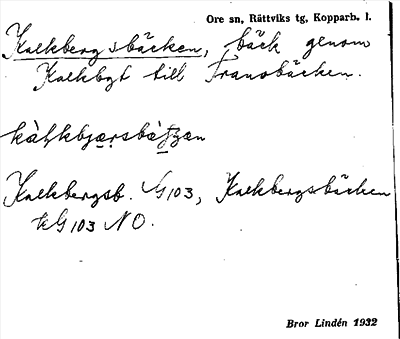 Ore sn, Rättviks tg, Kopparb. l.
Kalkbergsbäcken, bäck genom
Kalkbgt till Transbäcken.
Kalkbergsb. G103, Kalkbergsbäcken
G103 NO.
Bror Lindén 1932